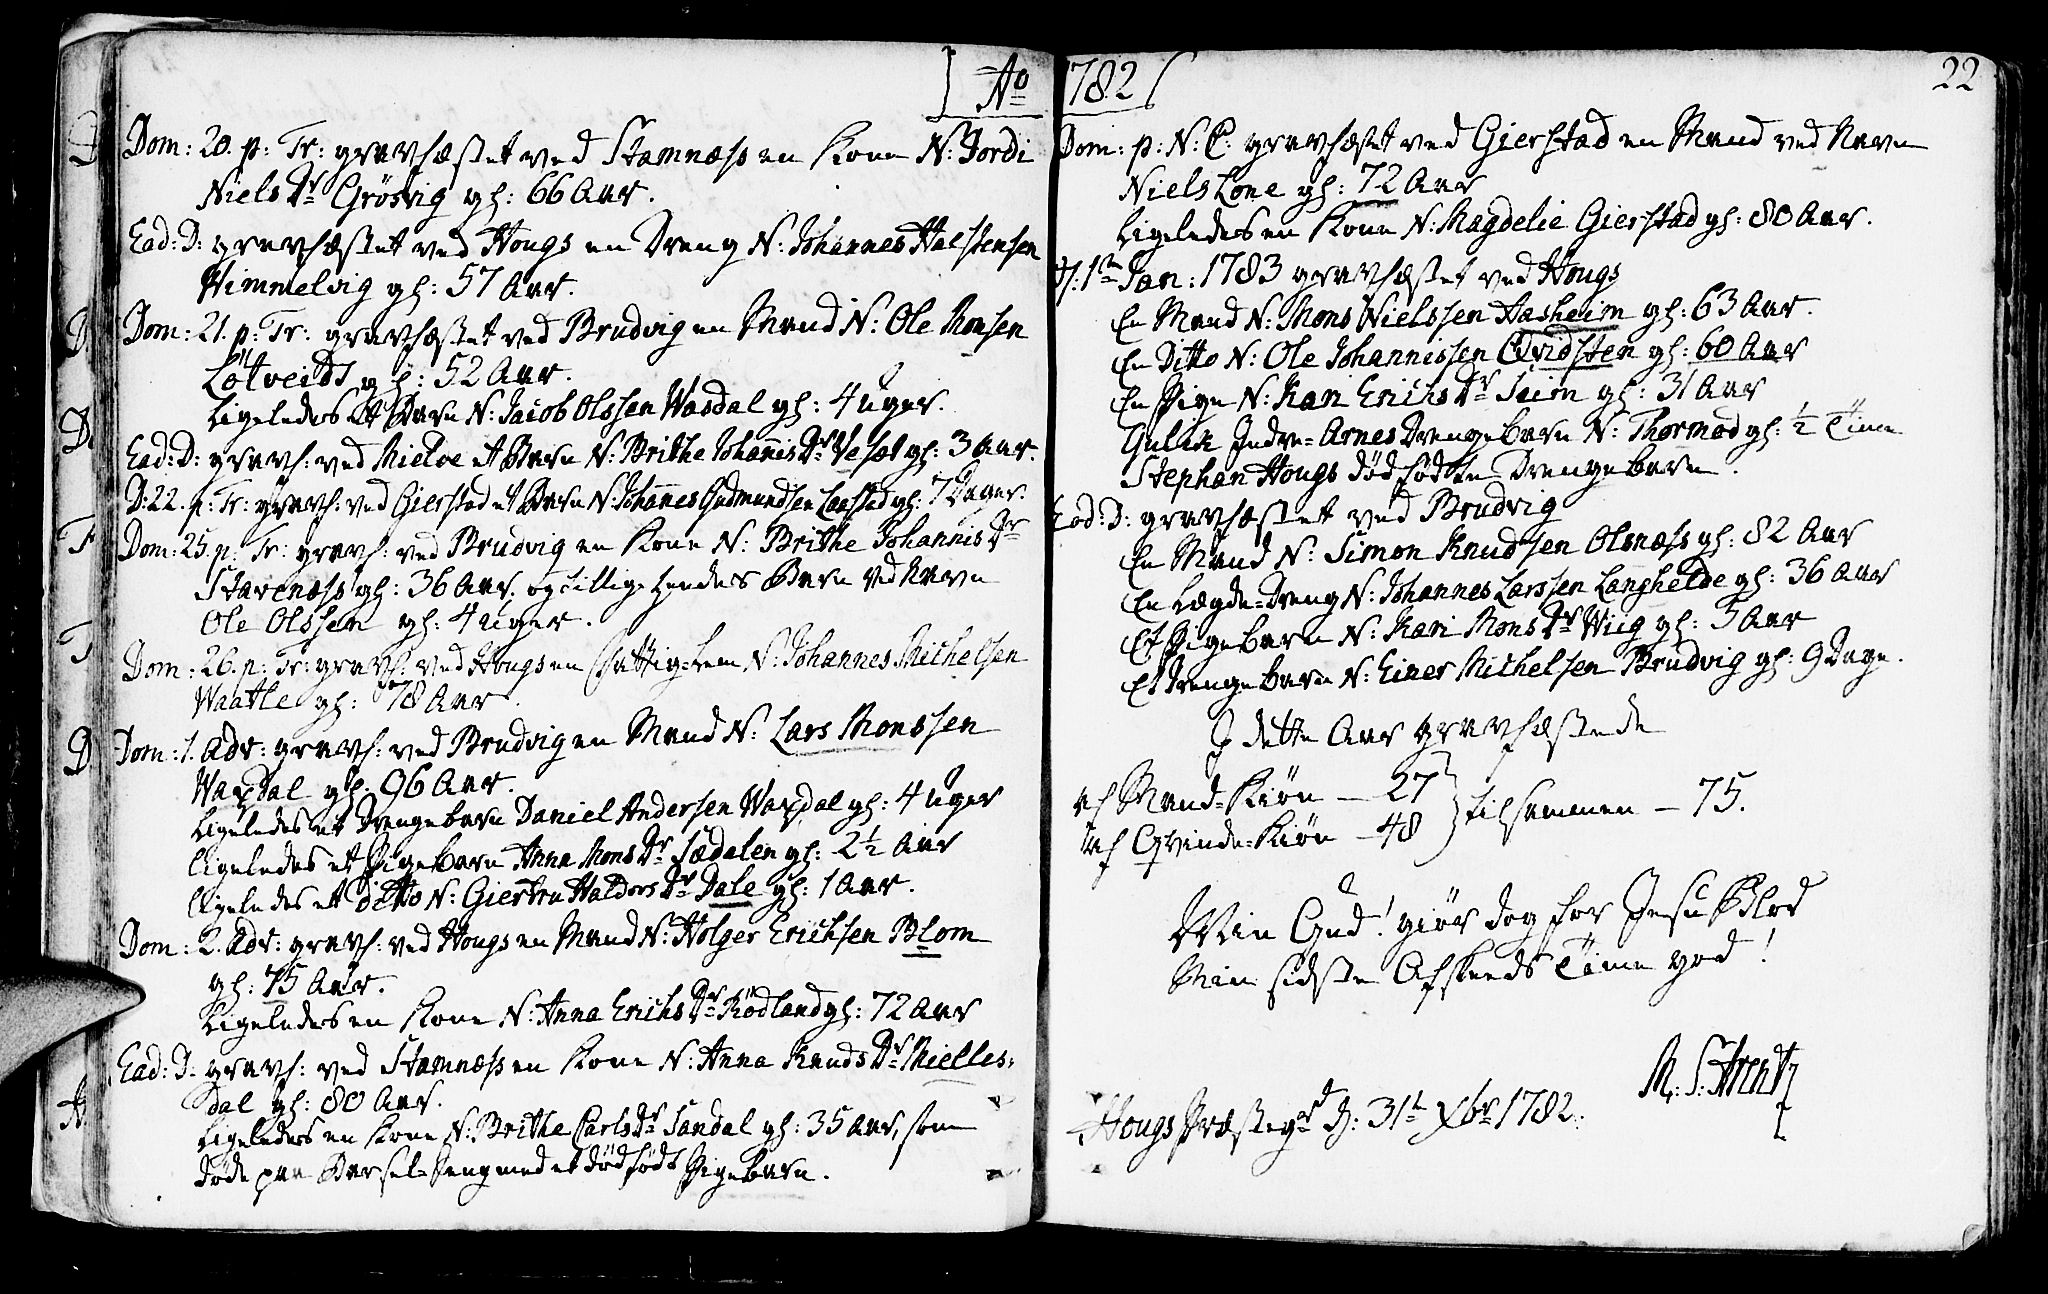 Ao 1782
22
Dom: 20. p: Tr: gravfæstet ved Stamnæss en Kone N: Jordi
Niels Dr Grösvig gl: 66 Aar.
Ead: D: gravfæstet ved Hougs en Dreng N: Johannes Halstensen
Himmelvig gl: 57 Aar.
Dom: 21. p: Tr: gravfæstet ved Brudvig en Mand N: Ole Monsen
Lötveidt gl: 52 Aar.
Ligeledes et Barn N: Jacob Olssen Wasdal gl: 4 uger.
Ead: D: gravf: ved Mielde et Barn N: Brithe Johannis Dr Vesæt gl: 3 Aar.
D: 22. p: Tr: gravf: ved Gierstad et Barn N: Johannes Gudmundsen gl: 7 Dager.
Dom: 25. p: Tr: gravf: ved Brudvig en Kone N: Brithe Johannis Dr
Stavenæss gl: 36 Aar. og tillige hendes Barn ved Navn
Ole Olssen gl: 4 uger.
Dom: 26. p: Tr: gravf: ved Hougs en fattig-lem N: Johannes Michelsen
Waatle gl: 78 Aar.
Dom: 1. Adv: gravf: ved Brudvig en Mand N: Lars Monssen
Waxdal gl: 96 Aar.
Ligeledes et Drengebarn Daniel Andersen Waxdal gl: 4 uger
ligeledes et Pigebarn Anna Mons Dr Sædalen gl: 2 1/2 Aar
ligeledes et ditto N: Giertru Haldors Dr Dale gl: 1 Aar.
Dom: 2. Adv: gravf: ved Hougs en Mand N: Holger Erichsen Blom
gl: 75 Aar.
Ligeledes en Kone N: Anna Erichs Dr Rödland gl: 72 Aar
Ead: D: gravf: ved Stamnæss en Kone N: Anna Knuds Dr Mielles-
dal gl: 80 Aar.
Ligeledes en Kone N: Brithe Carls Dr Sandal gl: 35 Aar, som
døde paa Barsel-Seng med et dødfødt Pigebarn.
Dom: p: N: C: gravfæstet ved Gierstad en Mand ved Navn
Niels Lone gl: 72 Aar
Ligeledes en Kone N: Magdelie Gierstad gl: 80 Aar.
D: 1te Jan: 1783 gravfæstet ved Hougs
En Mand N: Mons Nielssen Aasheim gl: 63 Aar.
En Ditto N: Ole Johannissen Qvidsten gl: 60 Aar
En Pige N: Kari Erichs Dr Seim gl: 31 Aar
Gulik Indre-Arnes Drengebarn N: Thormod gl: 1/2 Time
Stephan Hougs dødfødte Drengebarn.
Eod: D: gravfæstet ved Brudvig
En Mand N: Simon Knudsen Olsnæss gl: 82 Aar
En Lægde-Dreng N: Johannes Larssen Langhelde gl: 36 Aar
Et Pigebarn N: Kari Mons Dr Wiig gl: 5 Aar
Et Drengebarn N: Einer Michelsen Brudvig gl: 9 Dage.
I dette Aar gravfæstede
af Mand-Kiøn — 27
af Qvinde-Kiøn — 48
tilsammen — 75.
Min Gud! giør dog for Jesu Blod
Min sidste Afskeeds Time god!
M: S: Arentz
Hougs Præstegrd D: 31te Xbr 1782.